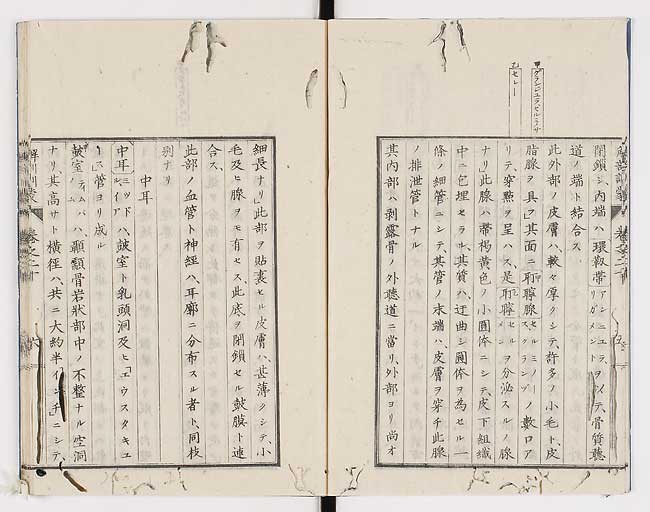 甲グランジュラ、セルミノサ
乙セレー
閉鎖シ、内端ハ環靱帯アンニユラ、リガメント ヲ以テ、骨質聴
道ノ端ト結合ス、
此外部ノ皮膚ハ、較々厚クシテ、許多ノ小毛ト、皮
脂腺ヲ具ヘ、其面ニ耵聹腺セルミノースグランヅ ノ數口ア
リテ、穿點ヲ呈ハス、是耵聹セルメン ヲ分泌スルノ腺
ナリ、此腺ハ帶褐黄色ノ小圓体ニシテ、皮下組織
中ニ包埋セラル、其質ハ、迂曲シ圓体ヲ為セル一
條ノ細管ニシテ、其管ノ末端ハ、皮膚ヲ穿チ、此腺
ノ排泄管トナル
其内部ハ、剥露骨ノ外聴道ニ當リ、外部ヨリ尚オ
細長ナリ、此部ヲ貼裏セル皮膚ハ、甚薄クシテ、小
毛及ヒ腺ヲモ有セス、此底ヲ閉鎖セル皷膜ト連
合ス、
此部ノ血管ト神經ハ、耳廓ニ分布スル者ト、同枝
別ナリ
中耳
中耳ミッドルイア ハ、皷室ト乳頭洞及ヒ「エウスタキユ
ース」管ヨリ成ル
皷室テムパン ハ、顳顬骨岩狀部中ノ不整ナル空洞
ナリ、其高サト横徑ハ、共ニ大約半「インチ」ニシテ、